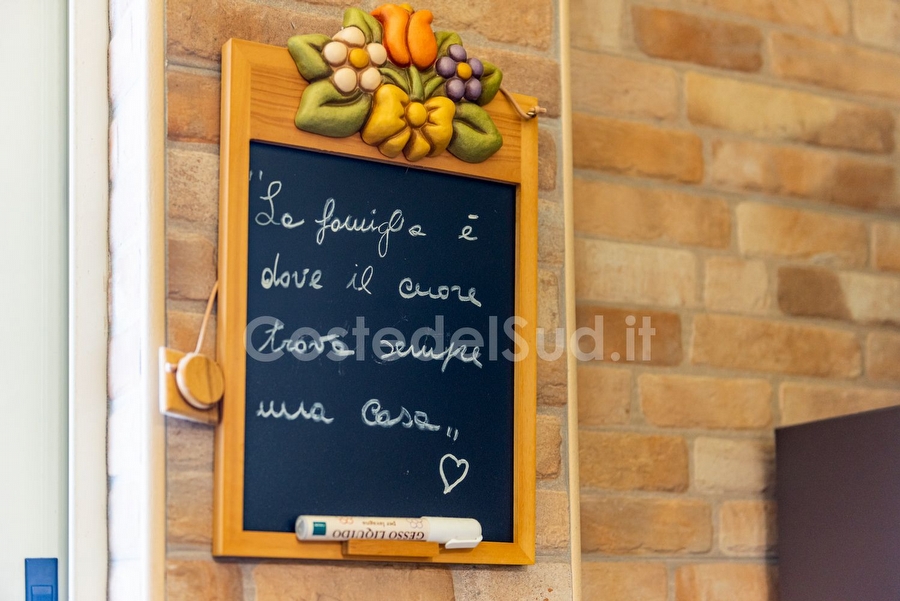 "La famiglia è
dove il cuore
trova sempre
una casa"
CostedelSud.it
GESSO LIQUIDO
per lavagne